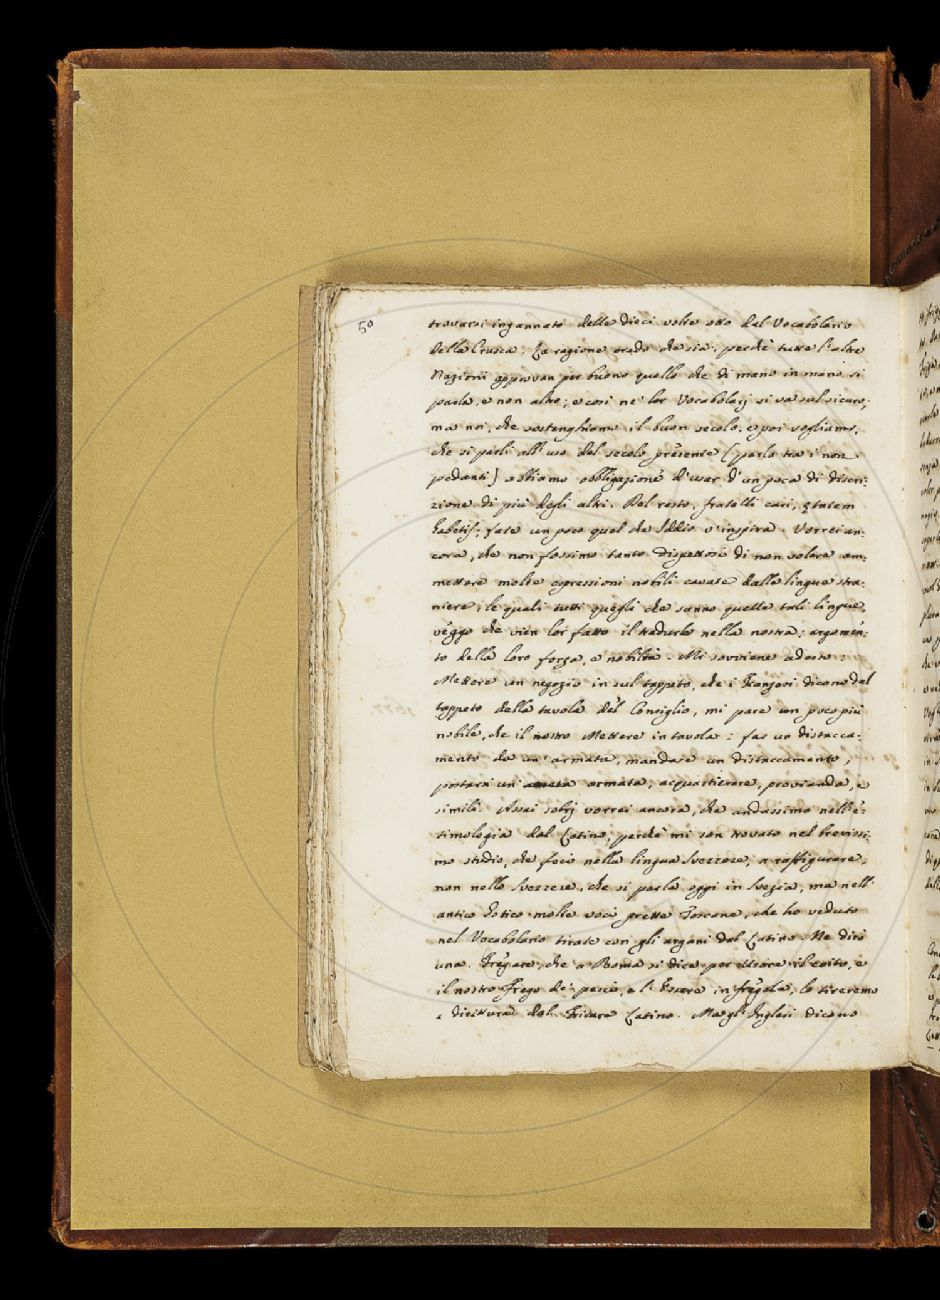 50
trovarsi ingannato delle dieci volte otto dal Vocabolario
della Crusca. La ragione credo che sia, perchè tutte l'altre
Nazioni approvan per buono quello che di mano in mano si
parla, e non altro; e così ne' lor Vocabolarj si va sul sicuro;
ma noi, che sostenghiamo il buon secolo, e poi vogliamo,
che si parli all'uso del secolo presente (parlo tra i non
pedanti) abbiamo obbligazione d'usar d'un poca di discri-
zione di più degli altri. Del resto, fratelli cari,
habetis; fate un poco quel che Iddio v'inspira. Vorrei an-
cora, che non fossimo tanto dispettosi di non volere am-
mettere molte espressioni nobili cavate dalle lingue stra-
niere, le quali tutti quegli che sanno quelle tali lingue,
veggo che vien lor fatto il tradurle nella nostra; argomen-
to della loro forza, e nobiltà. Mi sovviene adesso:
Mettere un negozio in sul tappeto, che i Franzesi dicono dal
tappeto della tavola del Consiglio, mi pare un poco più
nobile, che il nostro Mettere in tavola: far un distacca-
mento da un' armata, mandare un distaccamento,
portarsi un' armata, acquartierare, provianda, e
simili. Assai sobrj vorrei ancora, che andassimo nell'e-
timologia dal Latino, perchè mi son trovato nel brevissi-
mo studio, che feci nella lingua Svezzese, a raffigurare,
non nello Svezzese, che si parla oggi in Svezia, ma nell'
antico Gotico molte voci prette Toscane, che ho veduto
nel Vocabolario tirate con gli argani dal Latino. Ne dirò
una. Fregare, che a Roma si dice per Usare il coito, e
il nostro Frego de' pesci, e l'Essere in fregola, lo tireremo
a dirittura dal Fricare Latino. Ma gl'Inglesi dicono